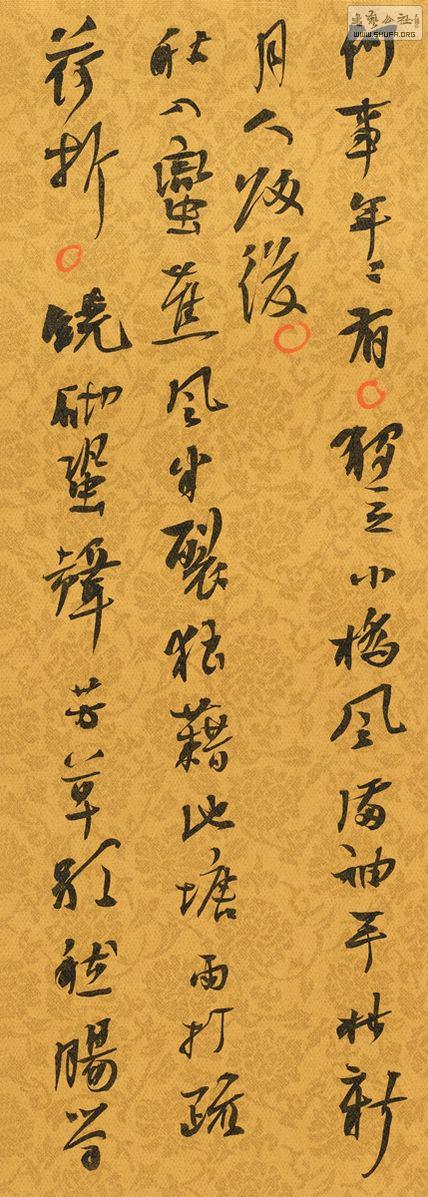 何事年々有獨立小橋風滿袖平林新
月人歸後
秋入蠻蕉風半裂狼藉池塘雨打疏
荷折繞砌蛩聲芳草歇愁腸學
書藝公社
WWW.SHUFA.ORG